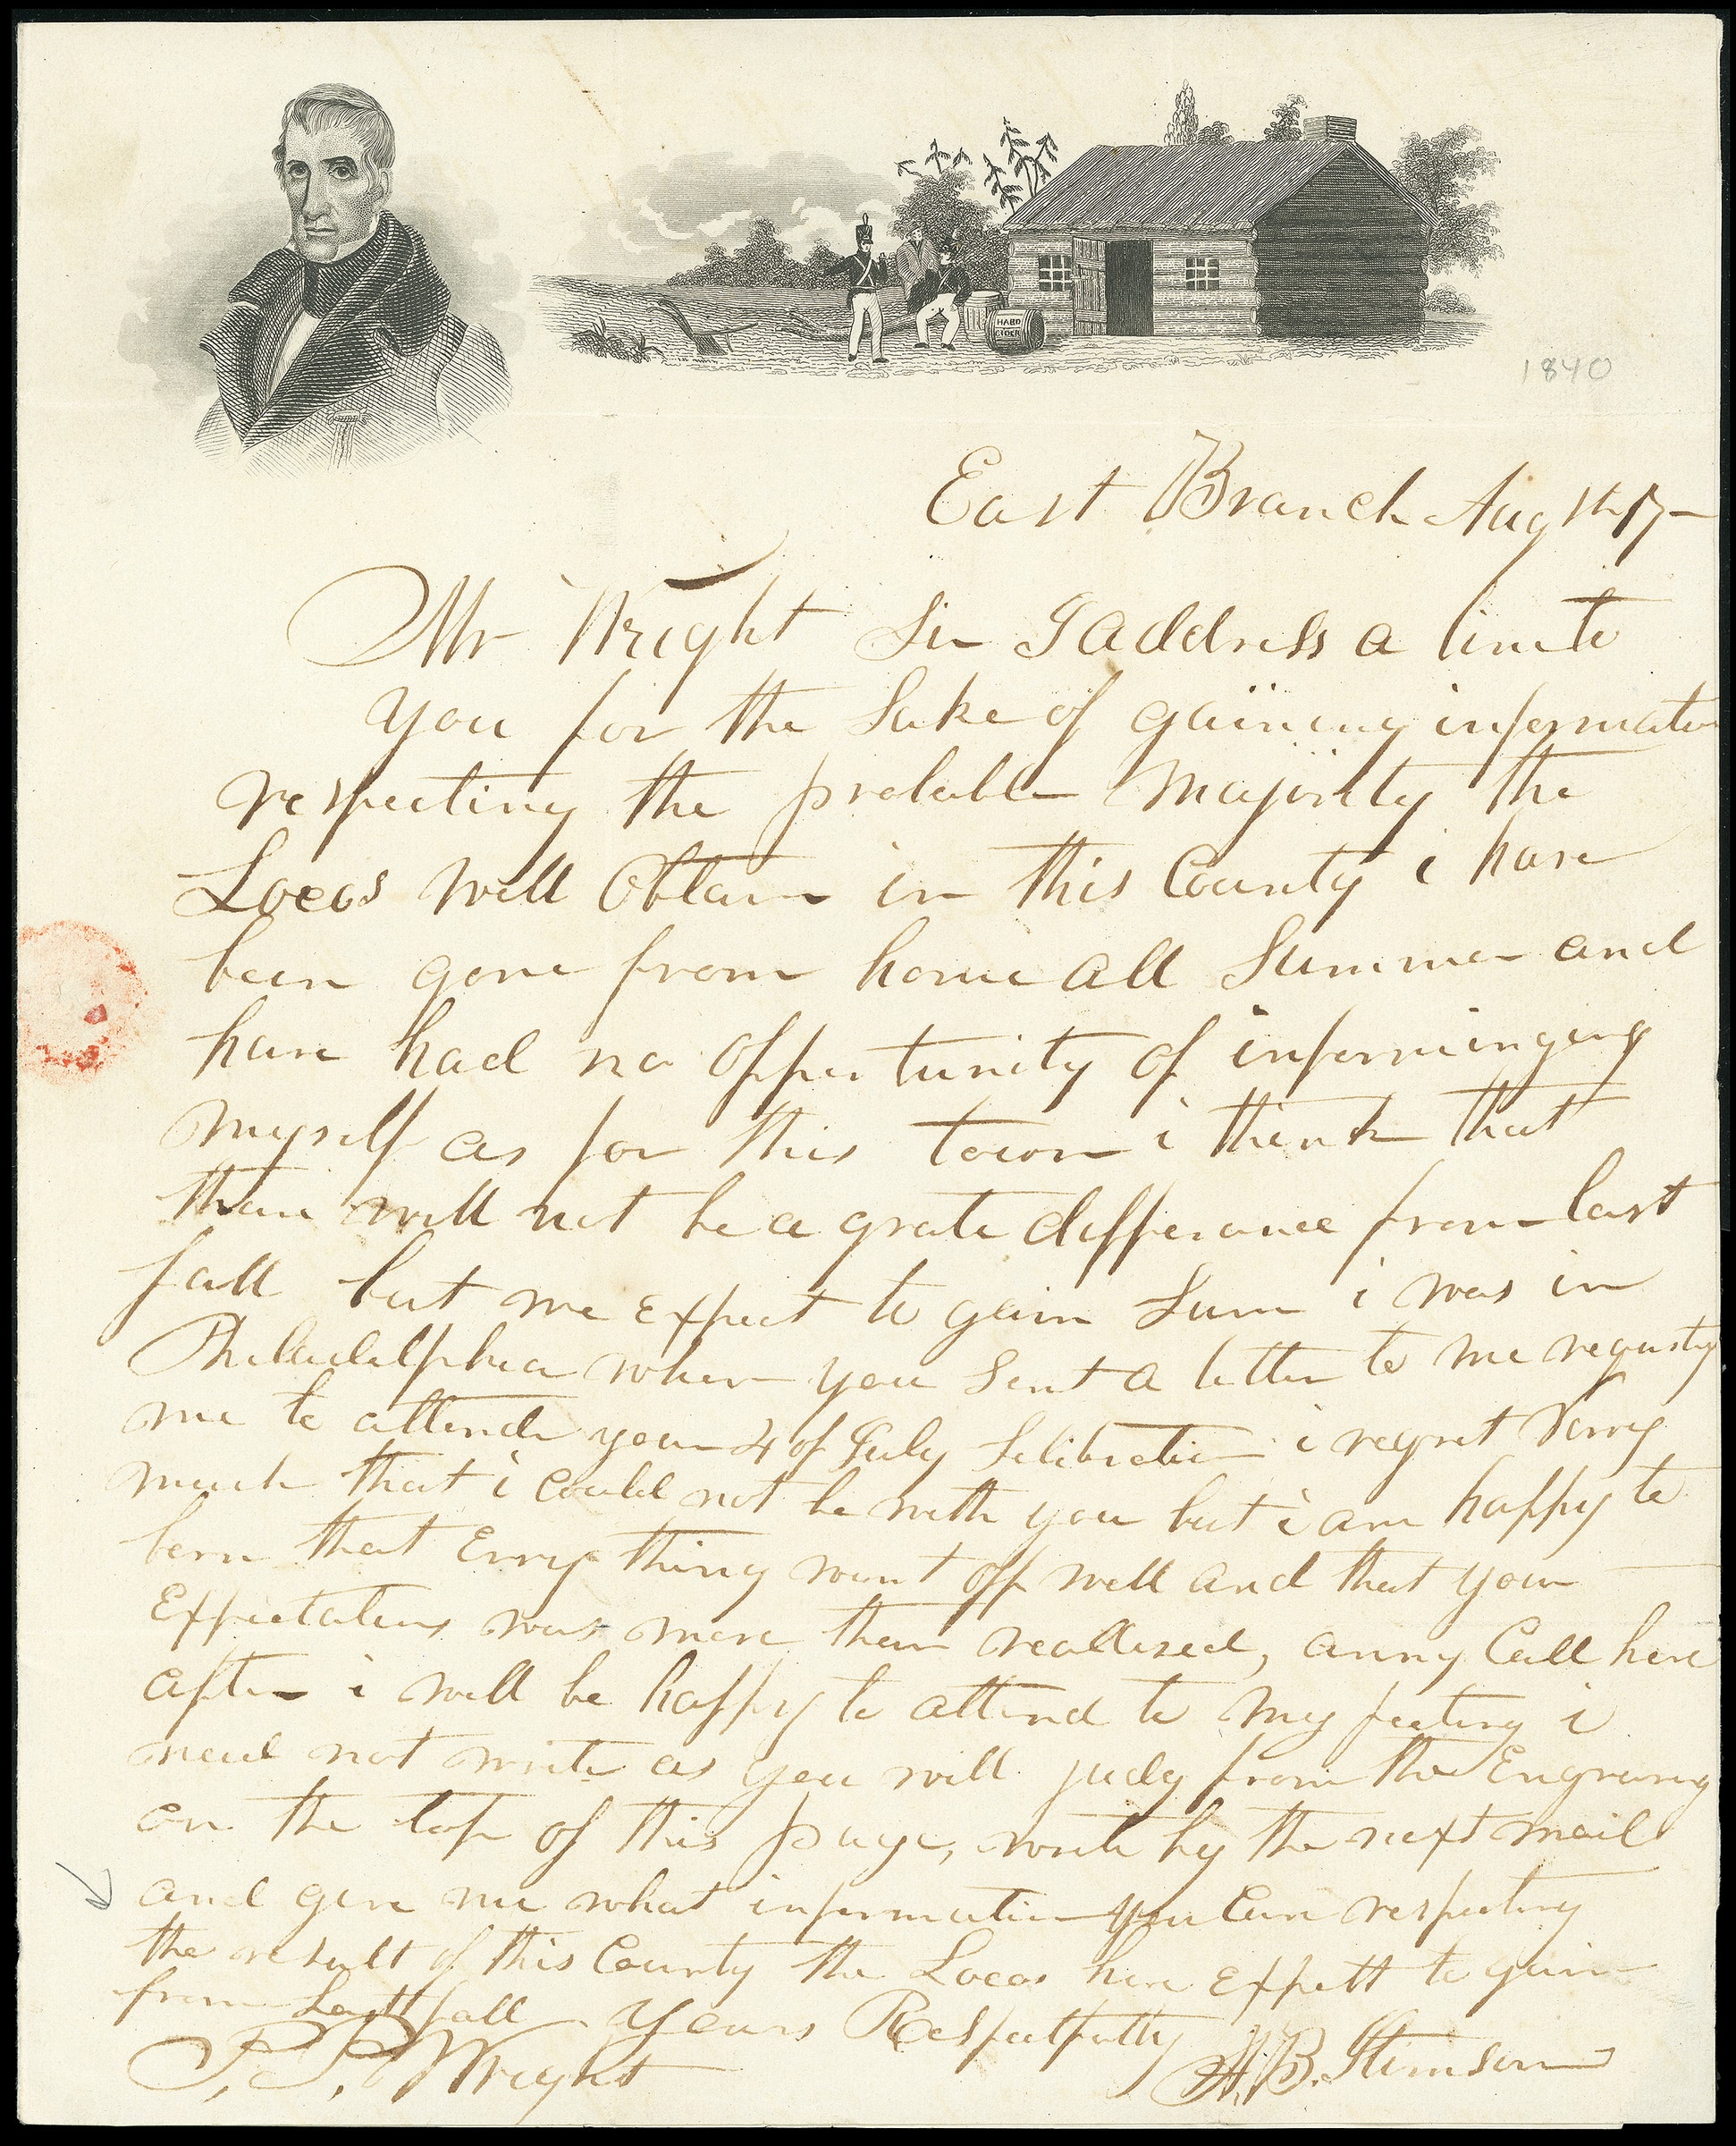 HARD
CIDER
1840
East Branch Aug 1th 17
Mr Wright Sir I address a line to
you for the Sake of gaining information
respecting the probable Majority the
Locos will Obtain in this County i have
been gone from home all Summer and
have had no Oppertunity of informinging
myself as for this town i think that
thare will not be a grate differance from last
fall but we Expect to gain Sum i was in
Philadelphia when you Sent a letter to me requsty
me to attend your 4 of July Selibration i regret Verry
much that i could not be with you but i am happy to
hern that Evry thing went off well and that your
Expectations was more then reallised, anny Call here
after i will be happy to attend to my feeting i
need not write as you will judg from the Engraving
on the top of this page, write by the next mail
and give me what information you Can respecting
the result of this County the Locos here Expett to gain
from Last fall Yours Respectfully
P. P. Wright H. B. Stimson